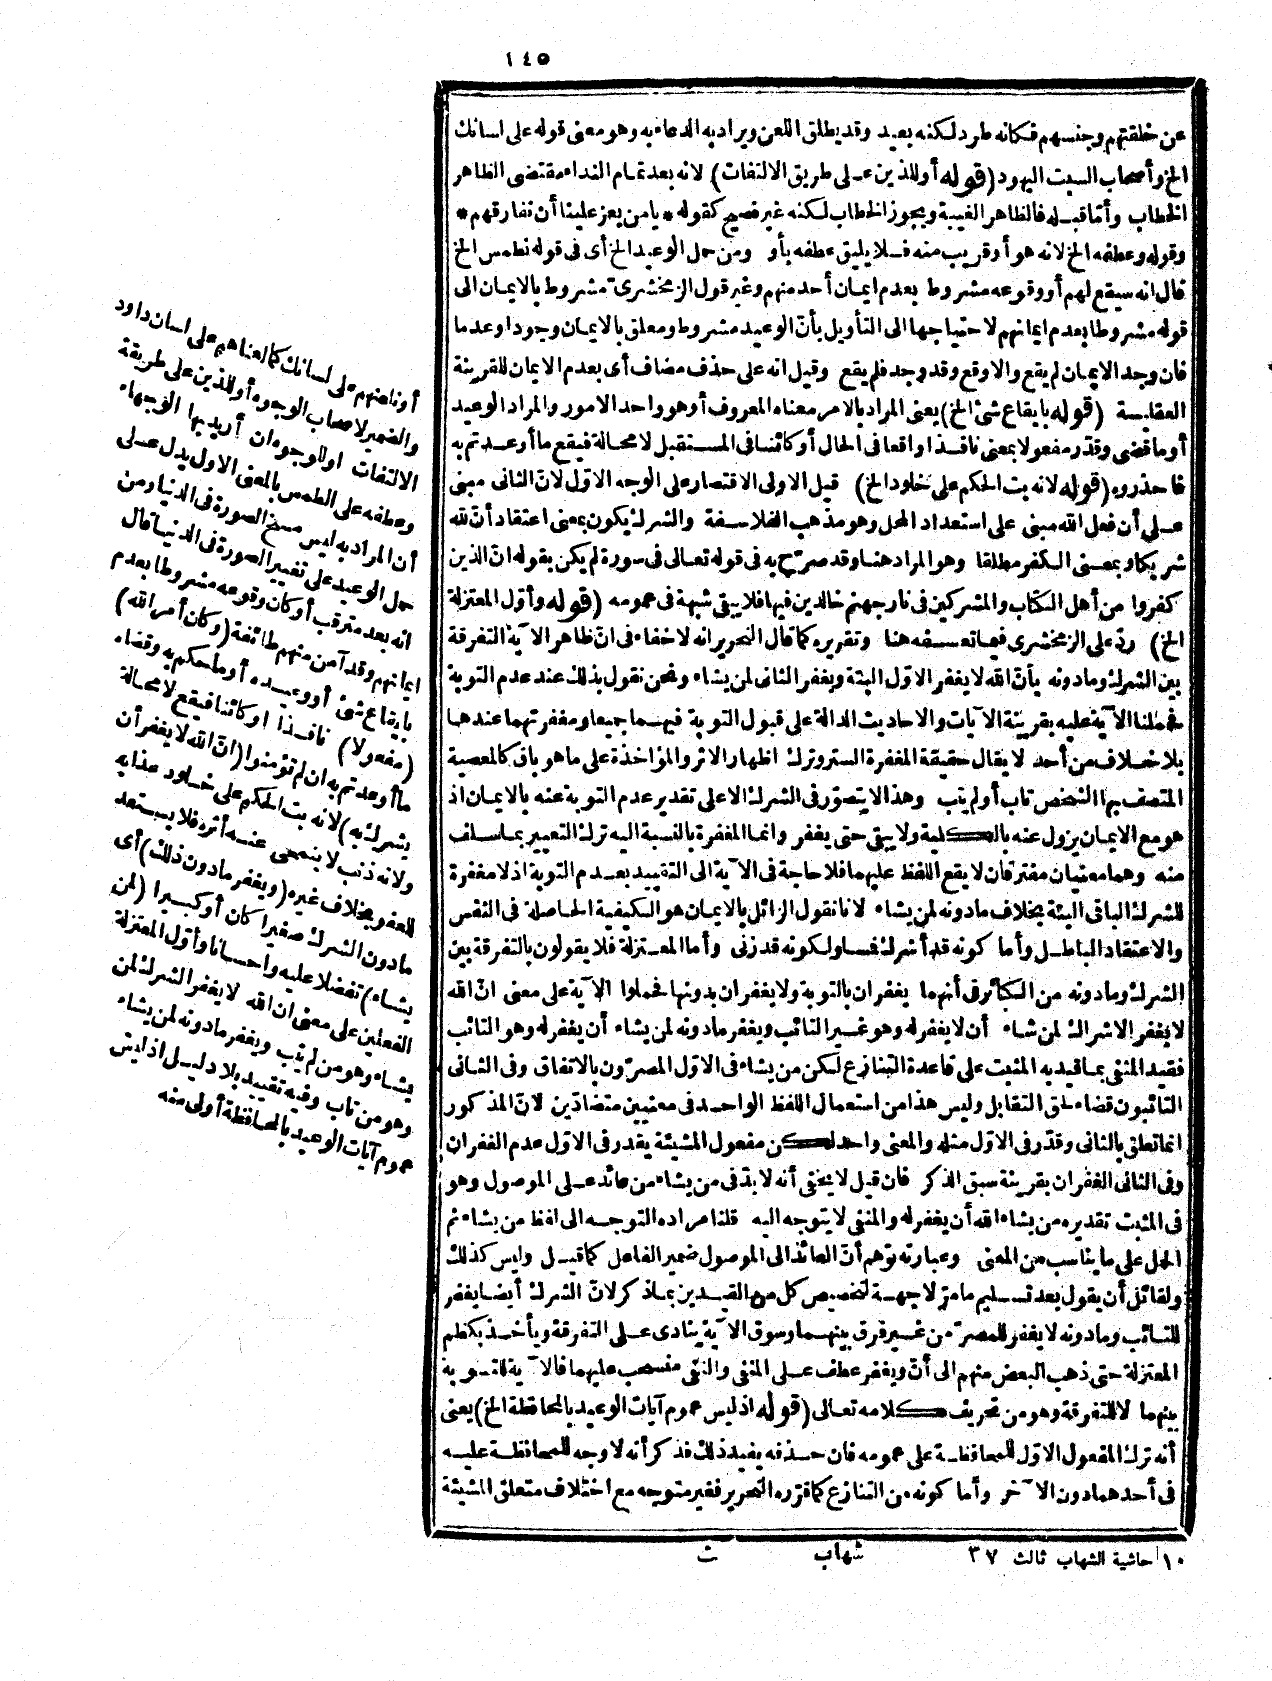 ١٤٥
عن خلقتهم وجنسهم فكانه طرد لكنه بعيد وقد يطلق اللعن ويراد به الدعاء به وهو معنى قوله على لسانك
الخ وأصحاب السبت اليهود (قوله أو للذين على طريق الالتفات) لانه بعد تمام النداء مقتضى الظاهر
الخطاب وأما قبله فالظاهر الغيبة ويجوز الخطاب لكنه غير فصيح كقوله * يا من يعز علينا أن نفارقهم *
وقوله وعطفه الخ لانه هو أو قريب منه فلا يليق عطفه بأو ومن حمل الوعيد الخ أى فى قوله نطمس الخ
قال انه سيقع لهم أو وقوعه مشروط بعدم ايمان أحد منهم وغير قول الزمخشرى مشروط بالايمان الى
قوله مشروطا بعدم ايمانهم لاحتياجها الى التأويل بأن الوعيد مشروط ومعلق بالايمان وجودا وعدما
فان وجد الايمان لم يقع والا وقع وقد وجد فلم يقع وقيل انه على حذف مضاف أى بعدم الايمان للقرينة
العقلية (قوله بايقاع شئ الخ) يعنى المراد بالامر معناه المعروف أو هو واحد الامور والمراد الوعيد
أو ما قضى وقدر مفعولا بمعنى نافذا واقعا فى الحال أو كائنا فى المستقبل لا محالة فيقع ما أوعدتم به
فاحذروه (قوله لانه بت الحكم على خلود الخ) قيل الاولى الاقتصار على الوجه الاول لان الثانى مبنى
على أن فعل الله مبنى على استعداد المحل وهو مذهب الفلاسفة والشرك يكون بمعنى اعتقاد أن لله
شريكا وبمعنى الكفر مطلقا وهو المراد هنا وقد صرح به فى قوله تعالى فى سورة لم يكن بقوله ان الذين
كفروا من أهل الكتاب والمشركين فى نار جهنم خالدين فيها فلا يبقى شبهة فى عمومه (قوله وأول المعتزلة
الخ) رد على الزمخشرى فيما تعسفه هنا وتقريره كما قال النحرير انه لا خفاء فى ان ظاهر الآية التفرقة
بين الشرك وما دونه بأن الله لا يغفر الاول البتة ويغفر الثانى لمن يشاء ونحن نقول بذلك عند عدم التوبة
فحملنا الآية عليه بقرينة الآيات والاحاديث الدالة على قبول التوبة فيهما جميعا ومغفرتهما عندها
بلا خلاف من أحد لا يقال حقيقة المغفرة الستر وترك اظهار الاثر والمؤاخذة على ما هو باق كالمعصية
المتصف بها الشخص تاب أو لم يتب وهذا لا يتصور فى الشرك الا على تقدير عدم التوبة عنه بالايمان اذ
هو مع الايمان يزول عنه بالكلية ولا يبقى حتى يغفر وانما المغفرة بالنسبة اليه ترك التعيير بما سلف
منه وهما معنيان مفترقان لا يقع اللفظ عليهما فلا حاجة فى الآية الى التقييد بعدم التوبة اذ لا مغفرة
للشرك الباقى البتة بخلاف ما دونه لمن يشاء لانا نقول الزائل بالايمان هو الكيفية الحاصلة فى النفس
والاعتقاد الباطل وأما كونه قد أشرك فمساو لكونه قد زنى وأما المعتزلة فلا يقولون بالتفرقة بين
الشرك وما دونه من الكبائر فى أنهما يغفران بالتوبة ولا يغفران بدونها فحملوا الآية على معنى ان الله
لا يغفر الاشراك لمن شاء أن لا يغفر له وهو غير التائب ويغفر ما دونه لمن يشاء أن يغفر له وهو التائب
فقيد المنفى بما قيد به المثبت على قاعدة التنازع لكن من يشاء فى الاول المصرون بالاتفاق وفى الثانى
التائبون قضاء لحق التقابل وليس هذا من استعمال اللفظ الواحد فى معنيين متضادين لان المذكور
انما تعلق بالثانى وقدر فى الاول مثله والمعنى واحد لكن مفعول المشيئة يقدر فى الاول عدم الغفران
وفى الثانى الغفران بقرينة سبق الذكر فان قيل لا يخفى أنه لا بد فى من يشاء من عائد على الموصول وهو
فى المثبت تقديره من يشاء الله أن يغفر له والمنفى لا يتوجه اليه قلنا مراده التوجه الى لفظ من يشاء ثم
الحمل على ما يناسب من المعنى وعبارته توهم أن العائد الى الموصول ضمير الفاعل كما قيل وليس كذلك
ولقائل أن يقول بعد تسليم ما مر لا جهة لتخصيص كل من القيدين بما ذكر لان الشرك أيضا يغفر
للتائب وما دونه لا يغفر للمصر من غير فرق بينهما وسوق الآية ينادى على التفرقة ويأخذ بكظم
المعتزلة حتى ذهب البعض منهم الى أن ويغفر عطف على المنفى والنفى منسحب عليهما فالآية للتسوية
بينهما لا للتفرقة وهو من تحريف كلامه تعالى (قوله اذ ليس عموم آيات الوعيد بالمحافظة الخ) يعنى
أنه ترك المفعول الاول للمحافظة على عمومه فان حذفه يفيد ذلك فذكر أنه لا وجه للمحافظة عليه
فى أحدهما دون الآخر وأما كونه من التنازع كما قرره النحرير فغير متوجه مع اختلاف متعلق المشيئة
أو نلعنهم على لسانك كما لعناهم على لسان داود
والضمير لاصحاب الوجوه أو للذين على طريقة
الالتفات او للوجوه ان أريد بها الوجهاء
وعطفه على الطمس بالمعنى الاول يدل على
أن المراد به ليس مسخ الصورة فى الدنيا ومن
حمل الوعيد على تغيير الصورة فى الدنيا قال
انه بعد مترقب أو كان وقوعه مشروطا بعدم
ايمانهم وقد آمن منهم طائفة (وكان أمر الله)
بايقاع شئ أو وعيده أو ما حكم به وقضاه
(مفعولا) نافذا او كائنا فيقع لا محالة
ما أوعدتم به ان لم تؤمنوا (ان الله لا يغفر أن
يشرك به) لانه بت الحكم على خلود عذابه
ولانه ذنب لا ينمحى عنه أثره فلا يستعد
للعفو بخلاف غيره (ويغفر ما دون ذلك) أى
ما دون الشرك صغيرا كان أو كبيرا (لمن
يشاء) تفضلا عليه واحسانا وأول المعتزلة
الفعلين على معنى ان الله لا يغفر الشرك لمن
يشاء وهو من لم يتب ويغفر ما دونه لمن يشاء
وهو من تاب وفيه تقييد بلا دليل اذ ليس
عموم آيات الوعيد بالمحافظة أولى منه
١٠ حاشية الشهاب ثالث ٣٧ شهاب ث